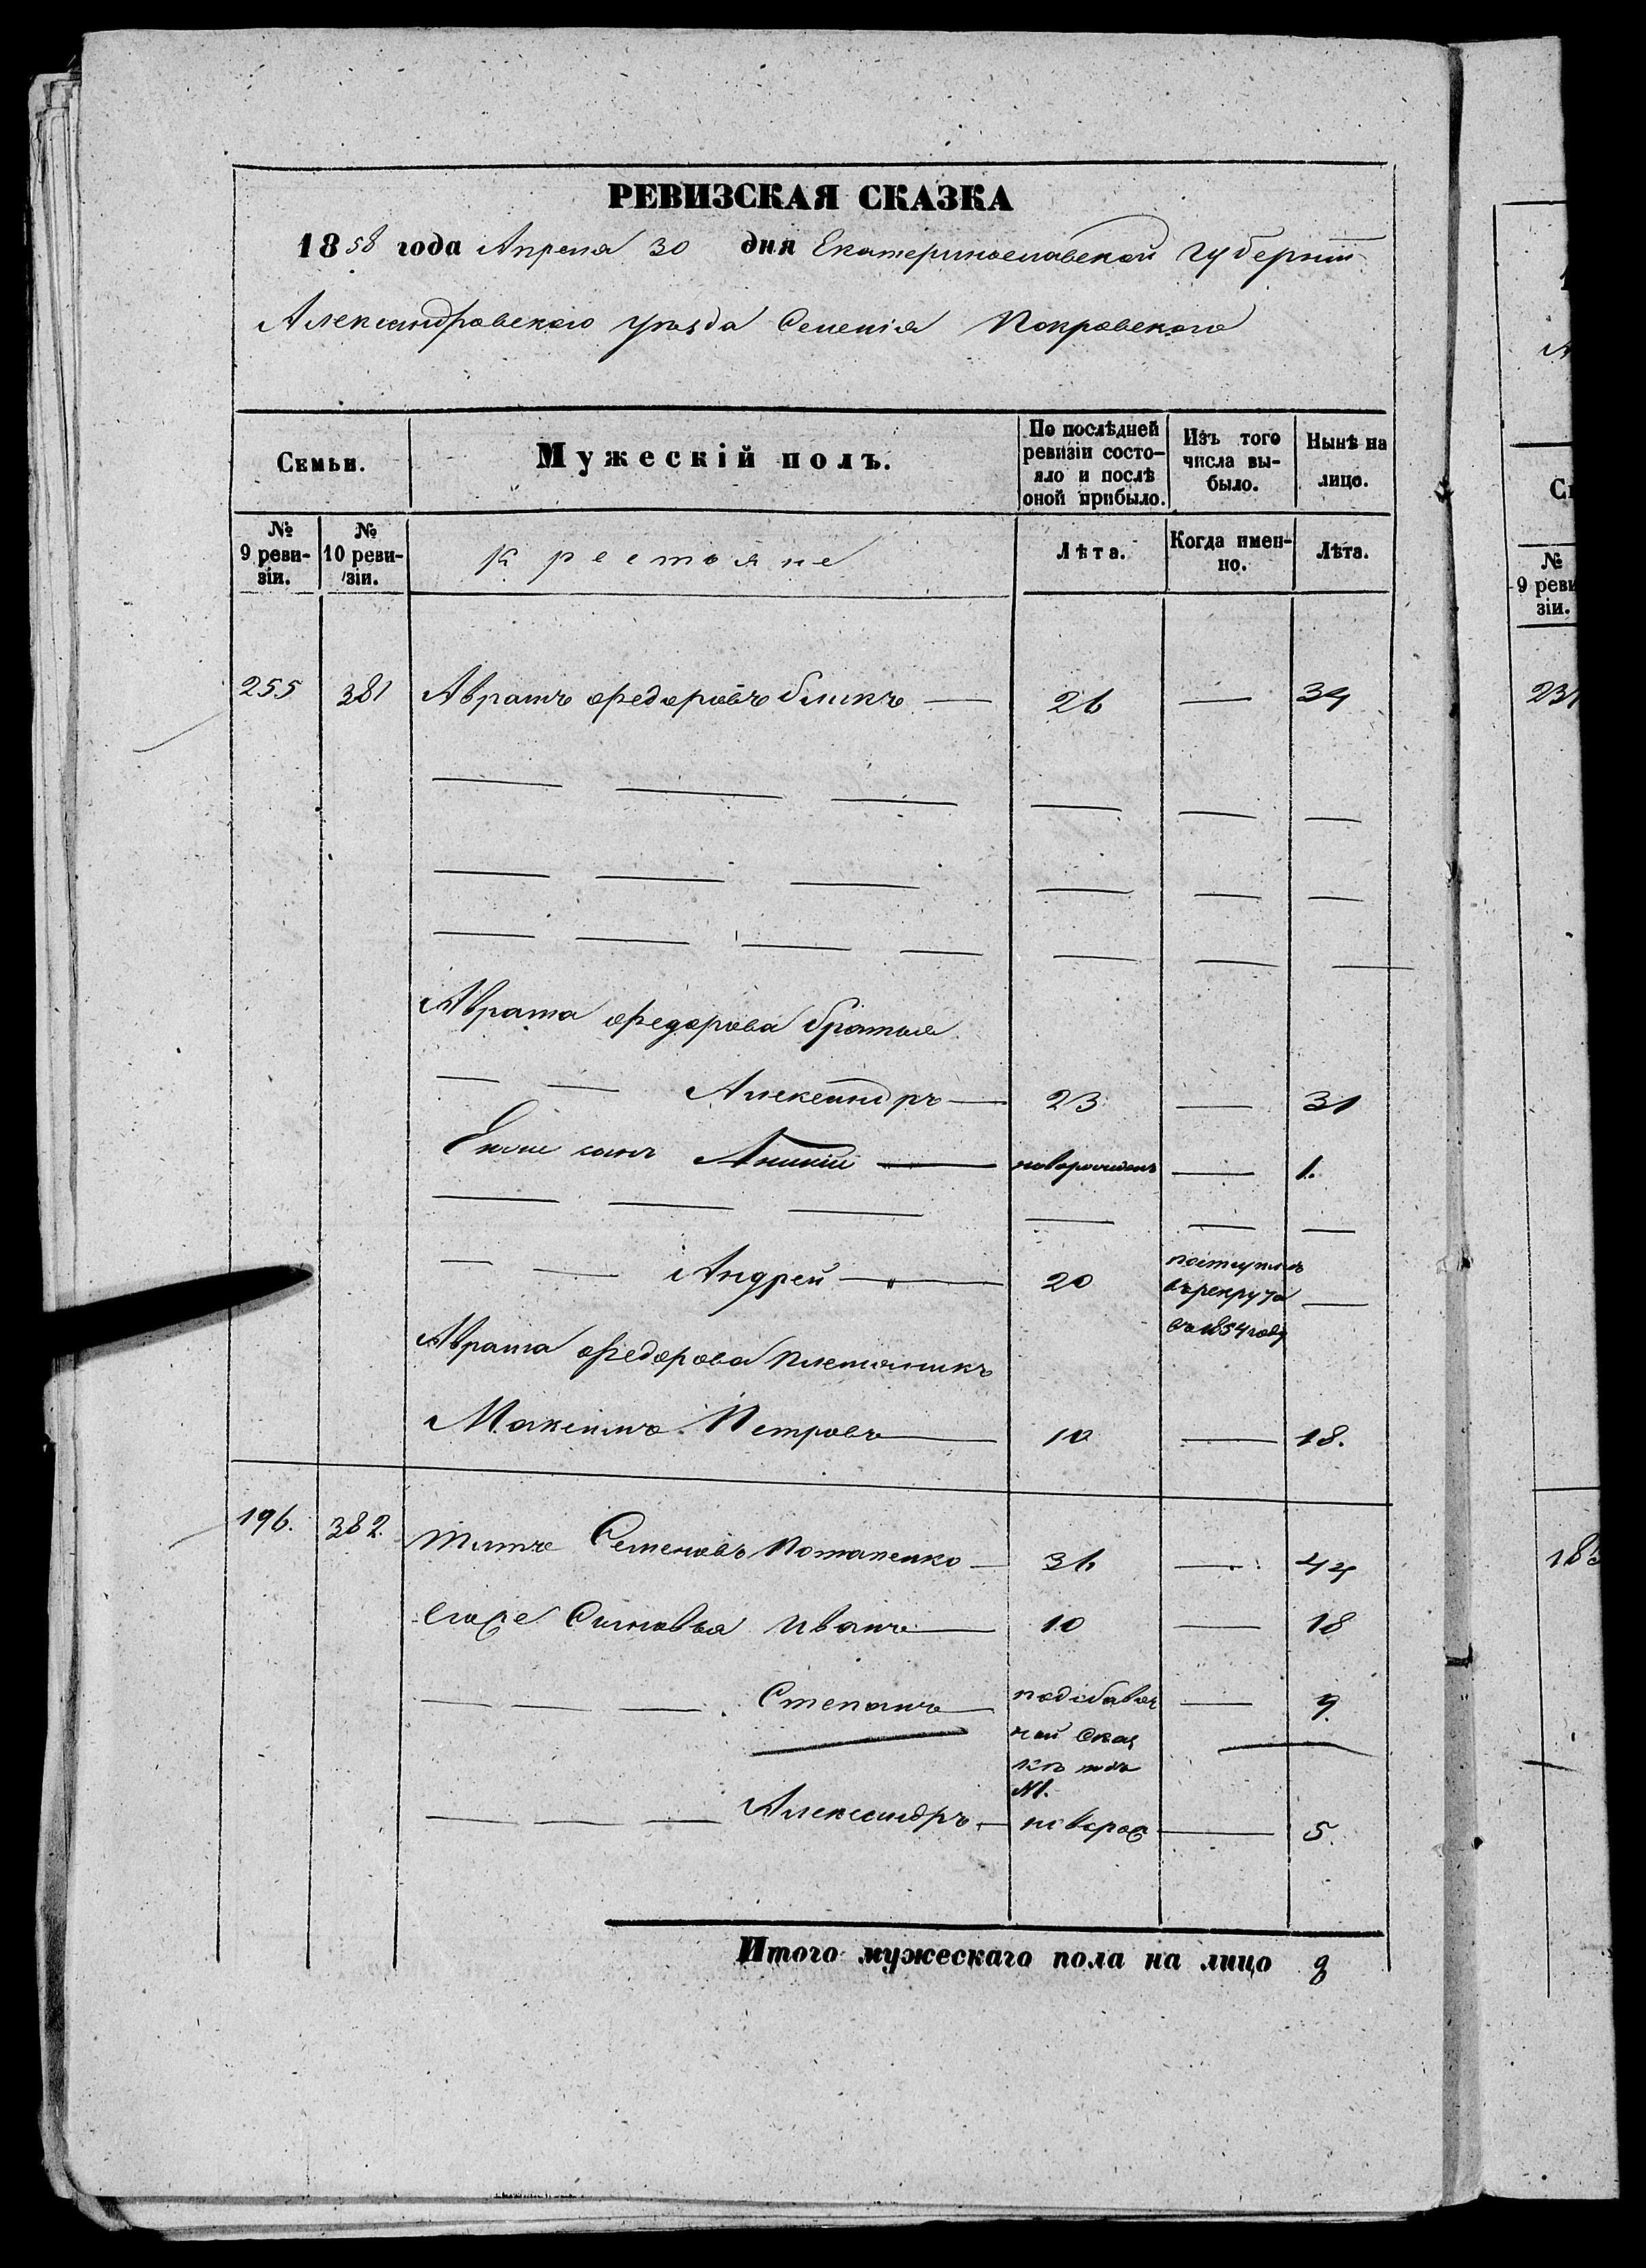 РЕВИЗСКАЯ СКАЗКА
1858 года Апреля 30 дня Екатеринославской губернiи
Александровского уезда Селенiя Покровского
Семьи.
Мужескiй полъ.
По послѣдней ревизiи состо-
яло и послѣ оной прибыло.
Изъ того числа вы-
было.
Нынѣ на лицо.
№ 9 реви-
зiи.
№ 10 реви-
зiи.
крестояне
Лѣта.
Когда имен-
но.
Лѣта.
255 381 Авратъ Федоровъ 26 — 34
— — — — — —
— — — — — —
— — — — — — —
Аврама Федорова братья
— — Александръ — 23 — 31
Ево сынъ Аникiй — новорожденъ — 1.
— — — — — —
— — Андрей — 20 поступилъ —
въ рекрута
въ 1854 году
Аврама Федорова племянникъ
Максимъ Петровъ — 10 — 18.
196. 382. Титъ Семеновъ Потапенко — 36 — 44
его Сыновья Иванъ — 10 — 18
— — — Степанъ — 9.
№ 1.
— — — Александръ — новорож — 5.
Итого мужескаго пола на лицо 8
№
9 реви
зiи.